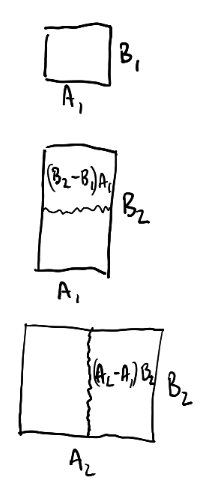 B₁
A₁
(B₂-B₁)A₁
B₂
A₁
(A₂-A₁)B₂
B₂
A₂